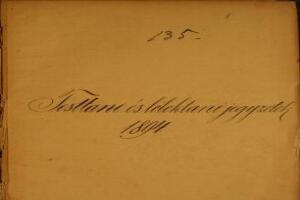 135.
Testtani és lélektani jegyzetek
1894